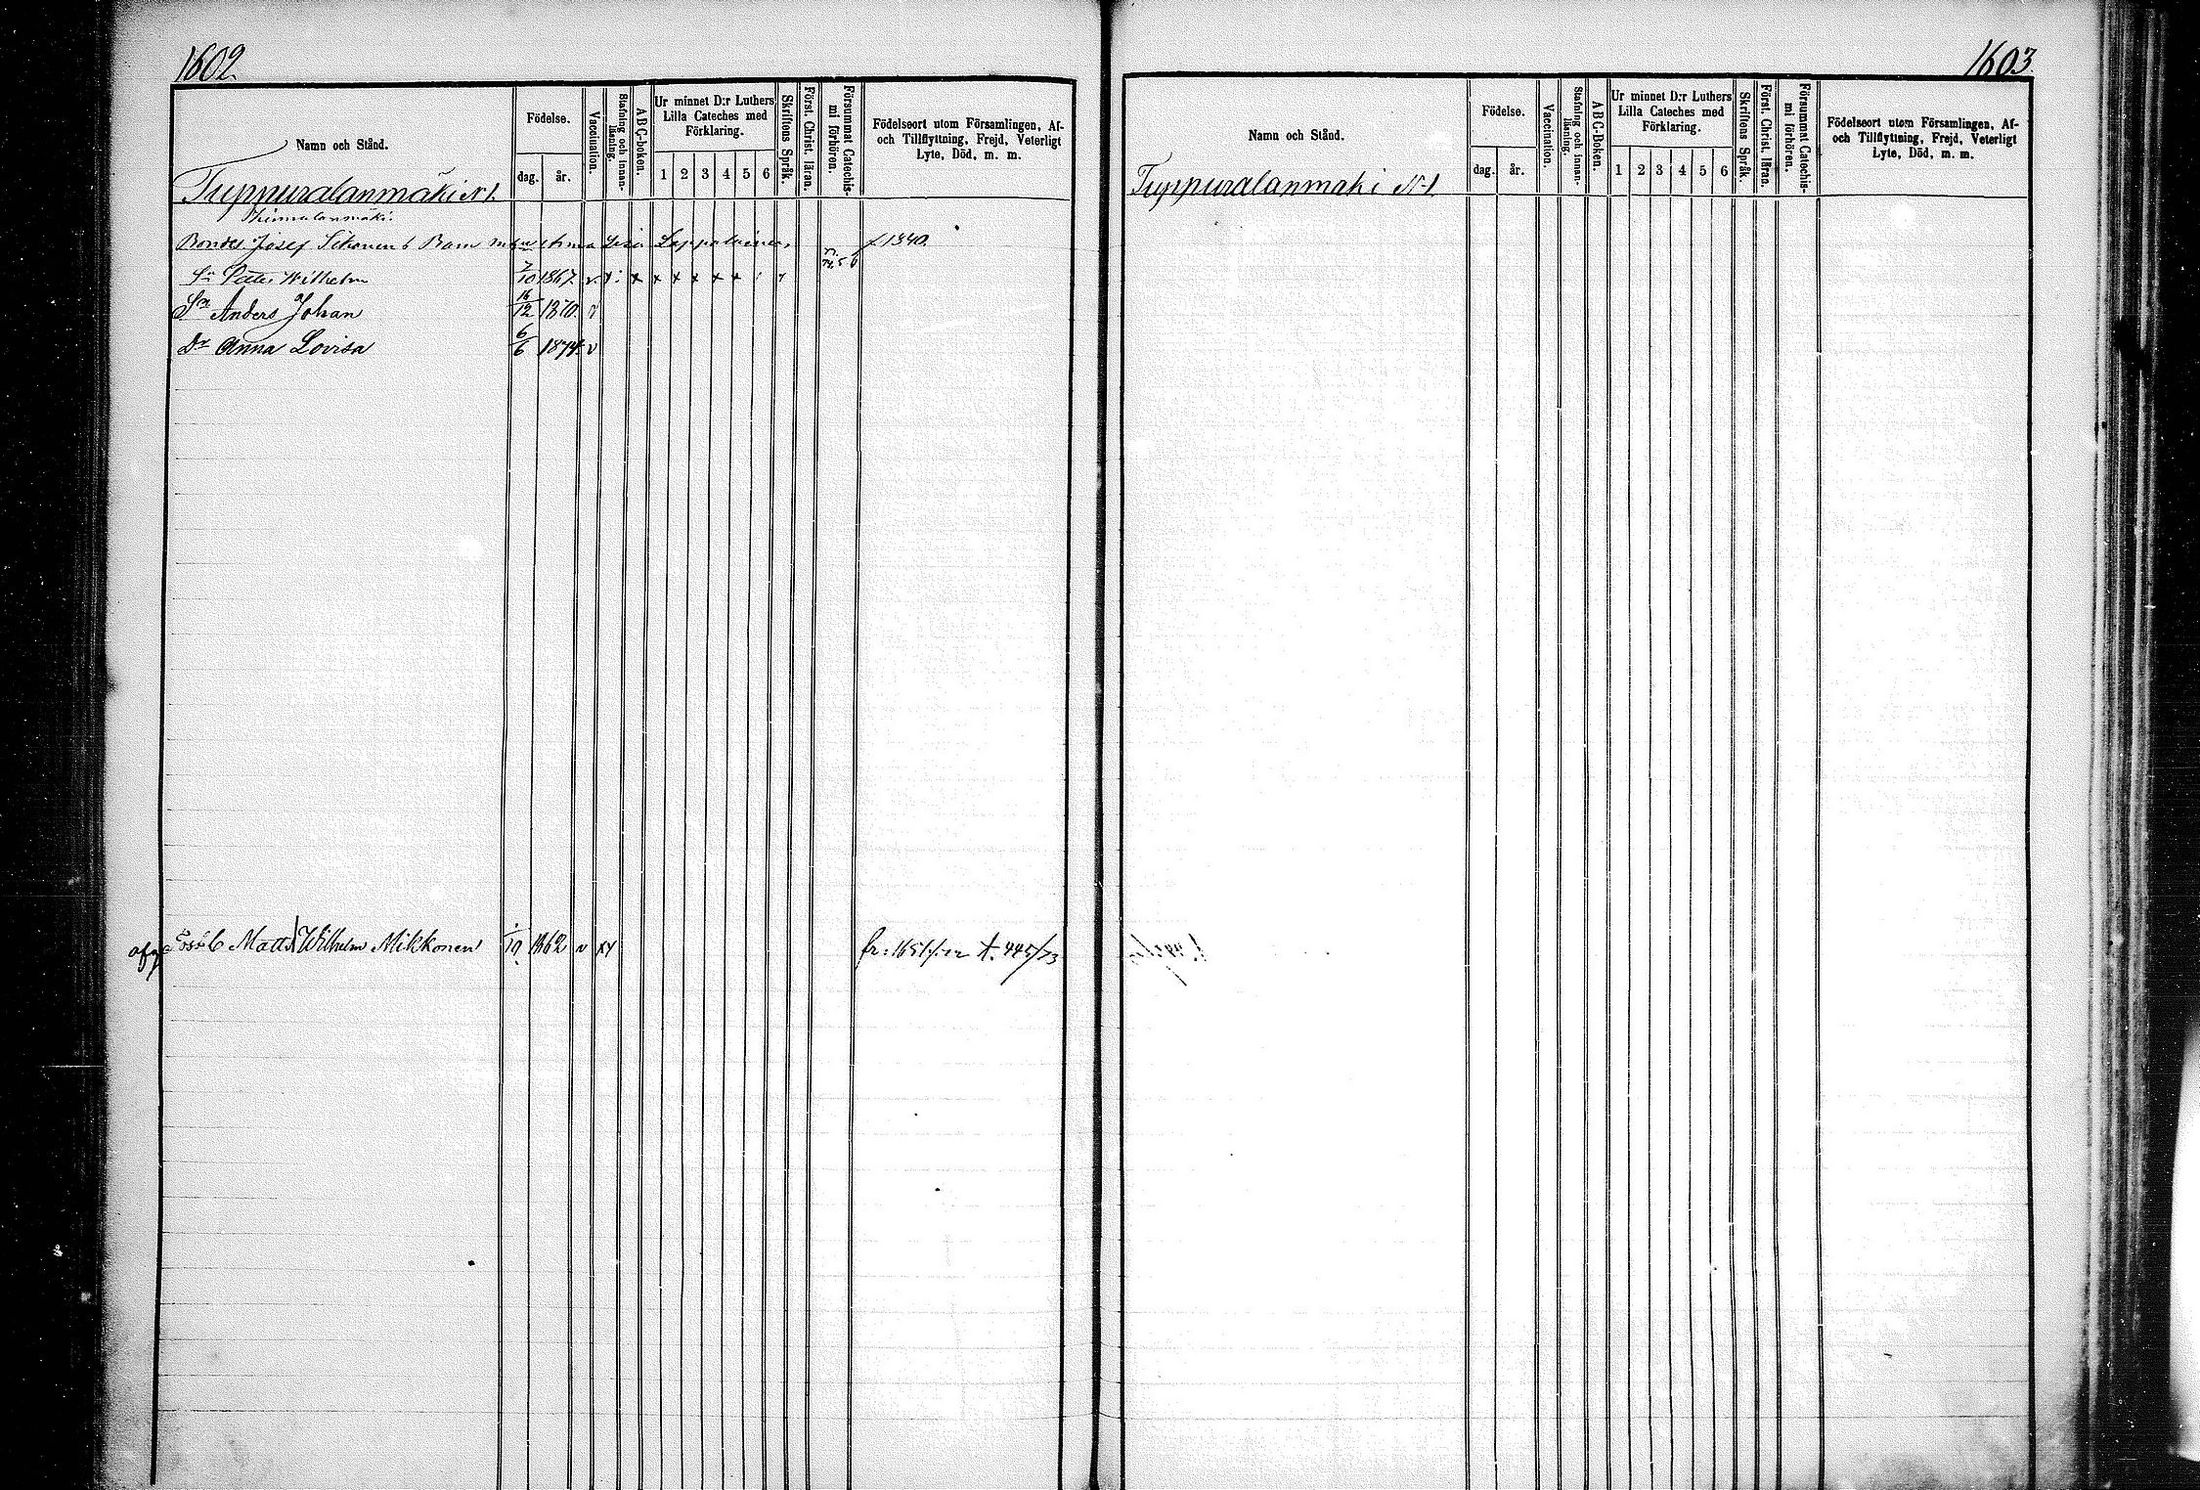 1602.
Namn och Stånd.
Födelse.
dag. år.
Vaccination.
Stafning och innanläsning.
ABC-boken.
Ur minnet D:r Luthers Lilla Cateches med Förklaring.
1 2 3 4 5 6
Skriftens Språk.
Först. Christ. läran.
Försummat Catechismi förhören.
Födelseort utom Församlingen, Af- och Tillflyttning, Frejd, Veterligt Lyte, Död, m. m.
Tuppuralanmäki N 1.
Bonde Josef Sikonens Barn med Anna Lisa Leppalainen 1340.
Sn Petter Wilhelm 7/10 1867. v x x x x x x
Sn Anders Johan 16/12 1870. v
Dr Anna Lovisa 6/6 1874. v
Matts Wilhelm Mikkonen /10 1862 v xy fr: t. 445/73
1603.
Namn och Stånd.
Födelse.
dag. år.
Vaccination.
Stafning och innanläsning.
ABC-Boken.
Ur minnet D:r Luthers Lilla Cateches med Förklaring.
1 2 3 4 5 6
Skriftens Språk.
Först. Christ. läran.
Försummat Catechismi förhören.
Födelseort utom Församlingen, Af- och Tillflyttning, Frejd, Veterligt Lyte, Död, m. m.
Tuppuralanmaki N 1